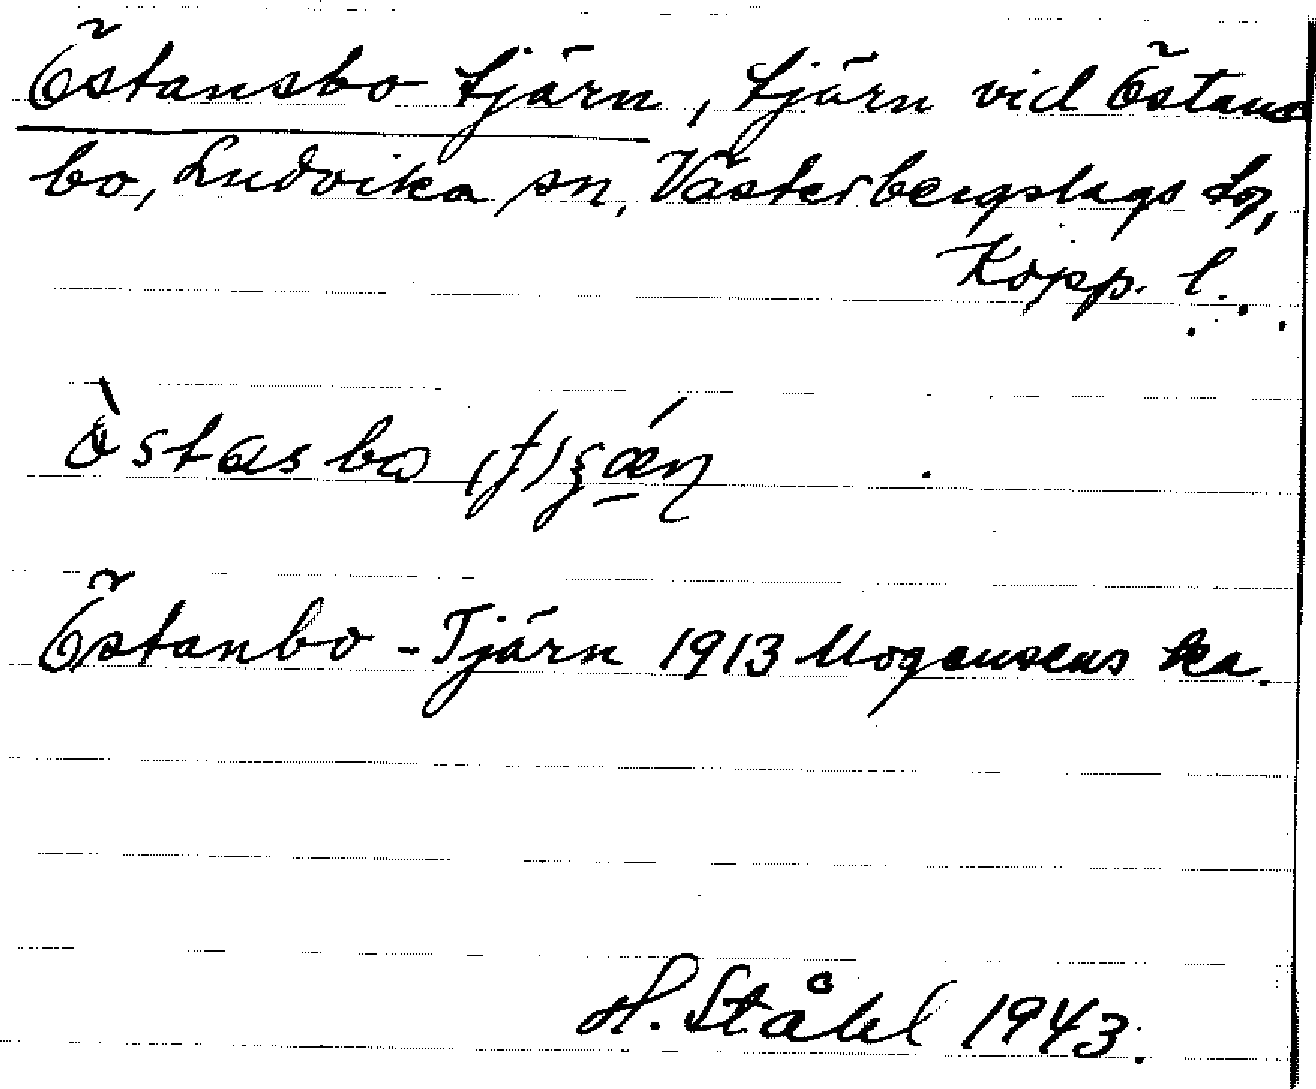 Östansbo tjärn, tjärn vid Östans
bo, Ludvika sn, Västerbergslags
Kopp. l.
Östanbo - Tjärn 1913 Mogensens ka.
H. Ståhl 1943.